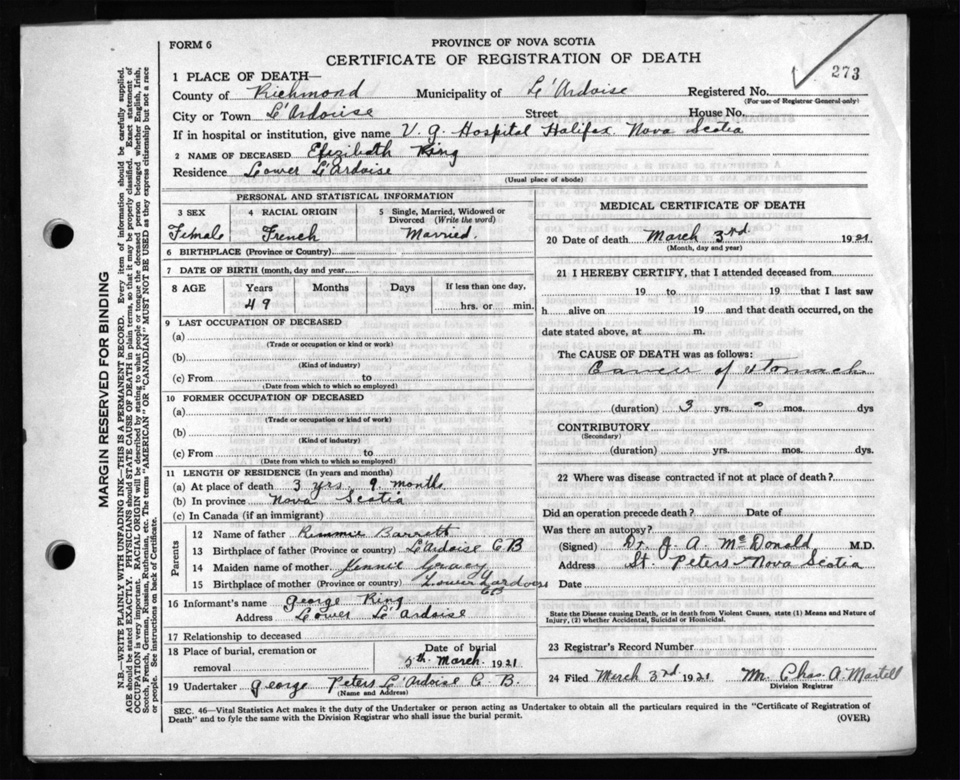 FORM 6
PROVINCE OF NOVA SCOTIA
CERTIFICATE OF REGISTRATION OF DEATH
273
1 PLACE OF DEATH—
County of Richmond Municipality of L'Ardoise Registered No.
(For use of Registrar General only)
City or Town L'Ardoise Street House No.
If in hospital or institution, give name V. G. Hospital Halifax Nova Scotia
2 NAME OF DECEASED Elizibath King
Residence Lower L'Ardoise
(Usual place of abode)
PERSONAL AND STATISTICAL INFORMATION
3 SEX 4 RACIAL ORIGIN 5 Single, Married, Widowed or Divorced (Write the word)
Female French Married.
6 BIRTHPLACE (Province or Country)
7 DATE OF BIRTH (month, day and year)
8 AGE Years Months Days If less than one day,
49 hrs. or min.
9 LAST OCCUPATION OF DECEASED
(a)
(Trade or occupation or kind or work)
(b)
(Kind of industry)
(c) From to
(Date from which to which so employed)
10 FORMER OCCUPATION OF DECEASED
(a)
(Trade or occupation or kind of work)
(b)
(Kind of industry)
(c) From to
(Date from which to which so employed)
11 LENGTH OF RESIDENCE (In years and months)
(a) At place of death 3 yrs. 9 months
(b) In province Nova Scotia
(c) In Canada (if an immigrant)
Parents
12 Name of father Barrett
13 Birthplace of father (Province or country) L'Ardoise C B
14 Maiden name of mother
15 Birthplace of mother (Province or country) Lower Lardoise
CB
16 Informant's name George King
Address Lower L'Ardoise
17 Relationship to deceased
18 Place of burial, cremation or removal
Date of burial
5th March 1921
19 Undertaker George Peters L'Ardoise C. B.
(Name and Address)
MEDICAL CERTIFICATE OF DEATH
20 Date of death March 3rd 1921
(Month, day and year)
21 I HEREBY CERTIFY, that I attended deceased from
19 to 19 that I last saw
h alive on 19 and that death occurred, on the
date stated above, at m.
The CAUSE OF DEATH was as follows:
Cancer of stomach
(duration) 3 yrs. mos. dys
CONTRIBUTORY
(Secondary)
(duration) yrs. mos. dys.
22 Where was disease contracted if not at place of death?
Did an operation precede death? Date of
Was there an autopsy?
(Signed) Dr. J. A. McDonald M.D.
Address St. Peters Nova Scotia
Date
State the Disease causing Death, or in death from Violent Causes, state (1) Means and Nature of
Injury, (2) whether Accidental, Suicidal or Homicidal.
23 Registrar's Record Number
24 Filed March 3rd 1921 M. Chas. A. Martell
Division Registrar
SEC. 46—Vital Statistics Act makes it the duty of the Undertaker or person acting as Undertaker to obtain all the particulars required in the "Certificate of Registration of
Death" and to fyle the same with the Division Registrar who shall issue the burial permit.
(OVER)
MARGIN RESERVED FOR BINDING
N.B.—WRITE PLAINLY WITH UNFADING INK—THIS IS A PERMANENT RECORD. Every item of information should be carefully supplied.
AGE should be stated EXACTLY. PHYSICIANS should STATE CAUSE OF DEATH in plain terms, so that it may be properly classified. Exact statement of
OCCUPATION is very important. RACIAL ORIGIN will be described by stating to what people or tongue the deceased person belonged whether English, Irish,
Scotch, French, German, Russian, Ruthenian, etc. The terms "AMERICAN" OR "CANADIAN" MUST NOT BE USED as they express citizenship but not a race
or people. See instructions on back of Certificate.